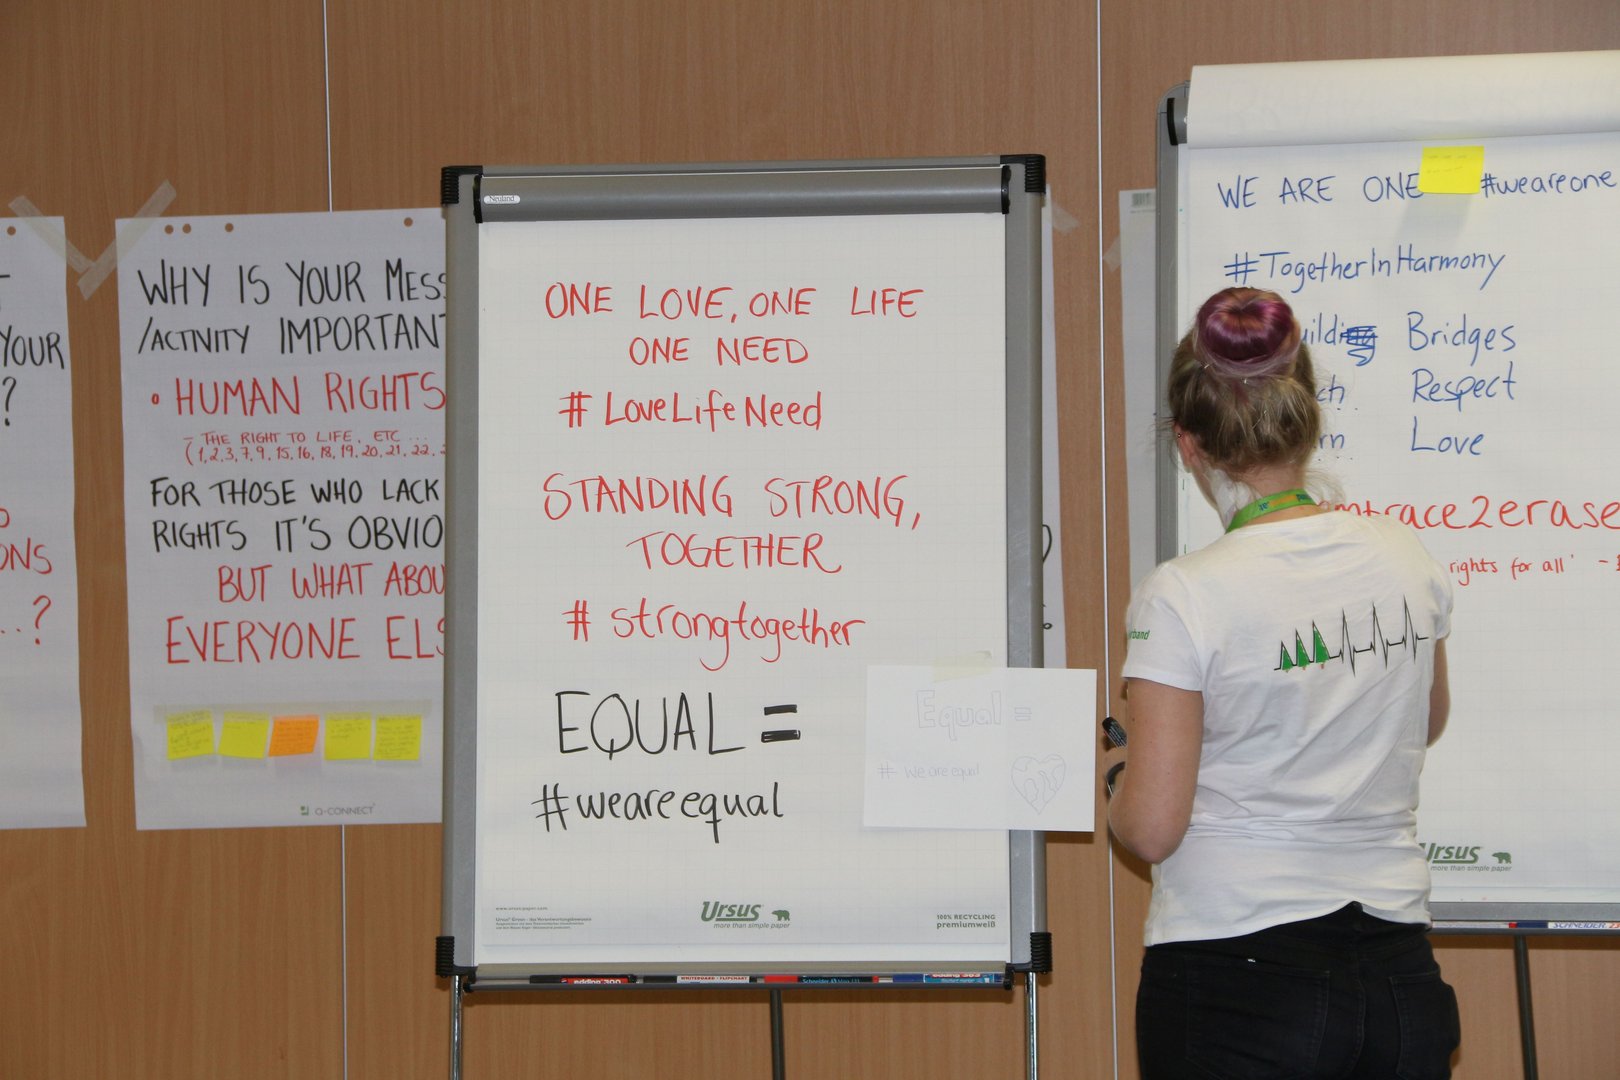 YOUR
?
ONS
...?
WHY IS YOUR MESS
/ACTIVITY IMPORTANT
• HUMAN RIGHTS
– THE RIGHT TO LIFE, ETC ...
(1,2,3,7,9,15,16,18,19,20,21,22,
FOR THOSE WHO LACK
RIGHTS IT'S OBVIO
BUT WHAT ABOU
EVERYONE ELS
Q-CONNECT
Neuland
ONE LOVE, ONE LIFE
ONE NEED
# LoveLifeNeed
STANDING STRONG,
TOGETHER
# strongtogether
EQUAL =
#weareequal
Equal =
# weareequal
www.ursus-paper.com
Ursus
more than simple paper
100% RECYCLING
premiumweiß
edding 300
WHITEBOARD + FLIPCHART
edding 383
WE ARE ONE #weareone
#TogetherInHarmony
Bridges
ch Respect
rn Love
race2erase
rights for all' -
band
Ursus
more than simple paper
SCHNEIDER